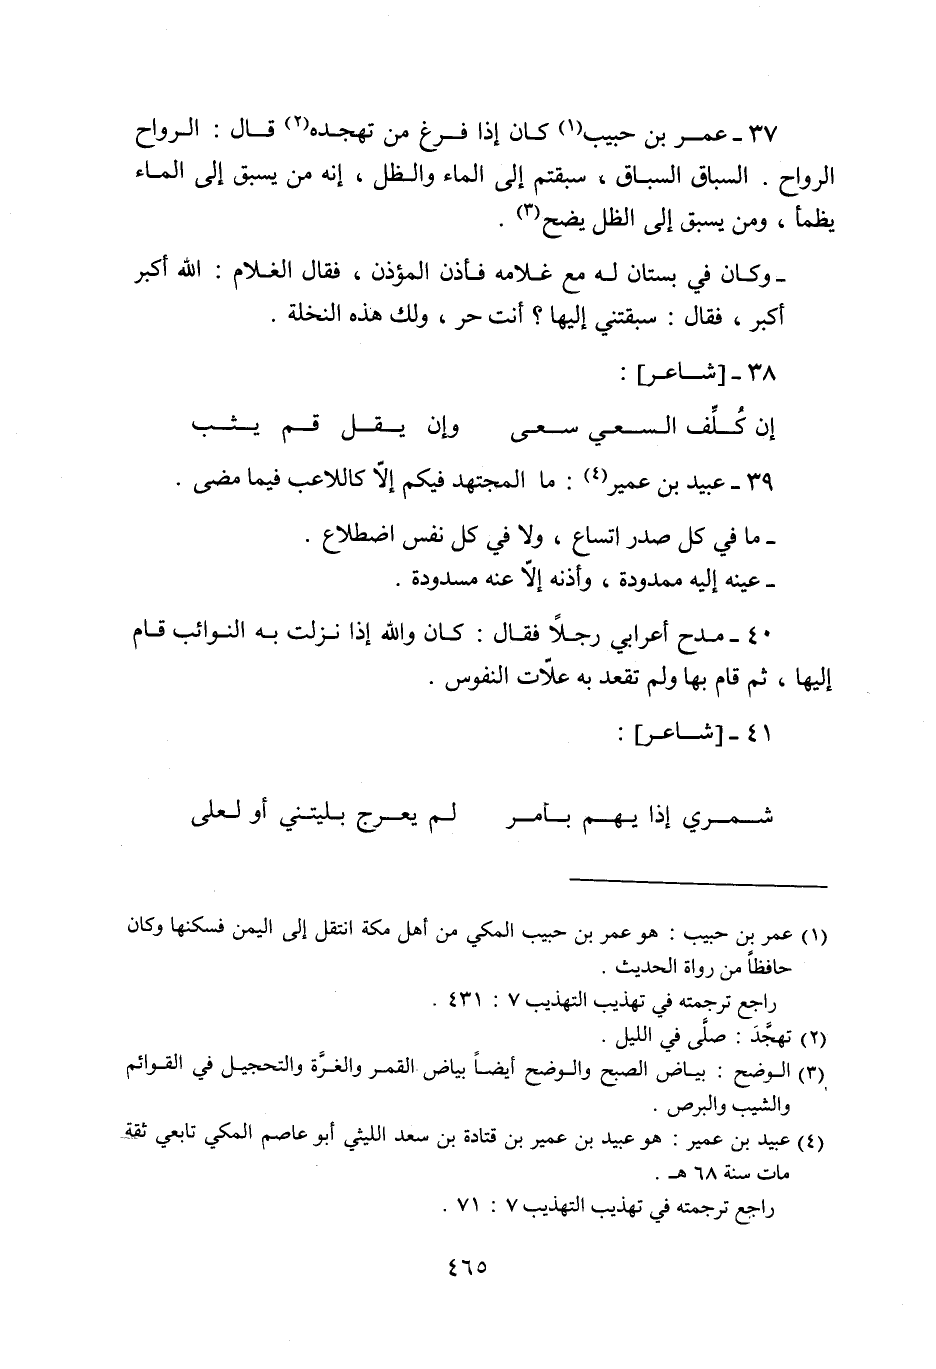 ٣٧ ـ عمر بن حبيب(١) كان إذا فرغ من تهجده(٢) قال : الرواح
الرواح . السباق السباق ، سبقتم إلى الماء والظل ، إنه من يسبق إلى الماء
يظمأ ، ومن يسبق إلى الظل يضح(٣) .
ـ وكان في بستان له مع غلامه فأذن المؤذن ، فقال الغلام : الله أكبر
أكبر ، فقال : سبقتني إليها ؟ أنت حر ، ولك هذه النخلة .
٣٨ ـ [شاعر] :
إن كُلِّف السعي سعى وإن يقل قم يثب
٣٩ ـ عبيد بن عمير(٤) : ما المجتهد فيكم إلاّ كاللاعب فيما مضى .
ـ ما في كل صدر اتساع ، ولا في كل نفس اضطلاع .
ـ عينه إليه ممدودة ، وأذنه إلاّ عنه مسدودة .
٤٠ ـ مدح أعرابي رجلاً فقال : كان والله إذا نزلت به النوائب قام
إليها ، ثم قام بها ولم تقعد به علاّت النفوس .
٤١ ـ [شاعر] :
شمري إذا يهم بأمر لم يعرج بليتني أو لعلى
(١) عمر بن حبيب : هو عمر بن حبيب المكي من أهل مكة انتقل إلى اليمن فسكنها وكان
حافظاً من رواة الحديث .
راجع ترجمته في تهذيب التهذيب ٧ : ٤٣١ .
(٢) تهجَّدَ : صلَّى في الليل .
(٣) الوضح : بياض الصبح والوضح أيضاً بياض القمر والغرَّة والتحجيل في القوائم
والشيب والبرص .
(٤) عبيد بن عمير : هو عبيد بن عمير بن قتادة بن سعد الليثي أبو عاصم المكي تابعي ثقة
مات سنة ٦٨ هـ .
راجع ترجمته في تهذيب التهذيب ٧ : ٧١ .
٤٦٥